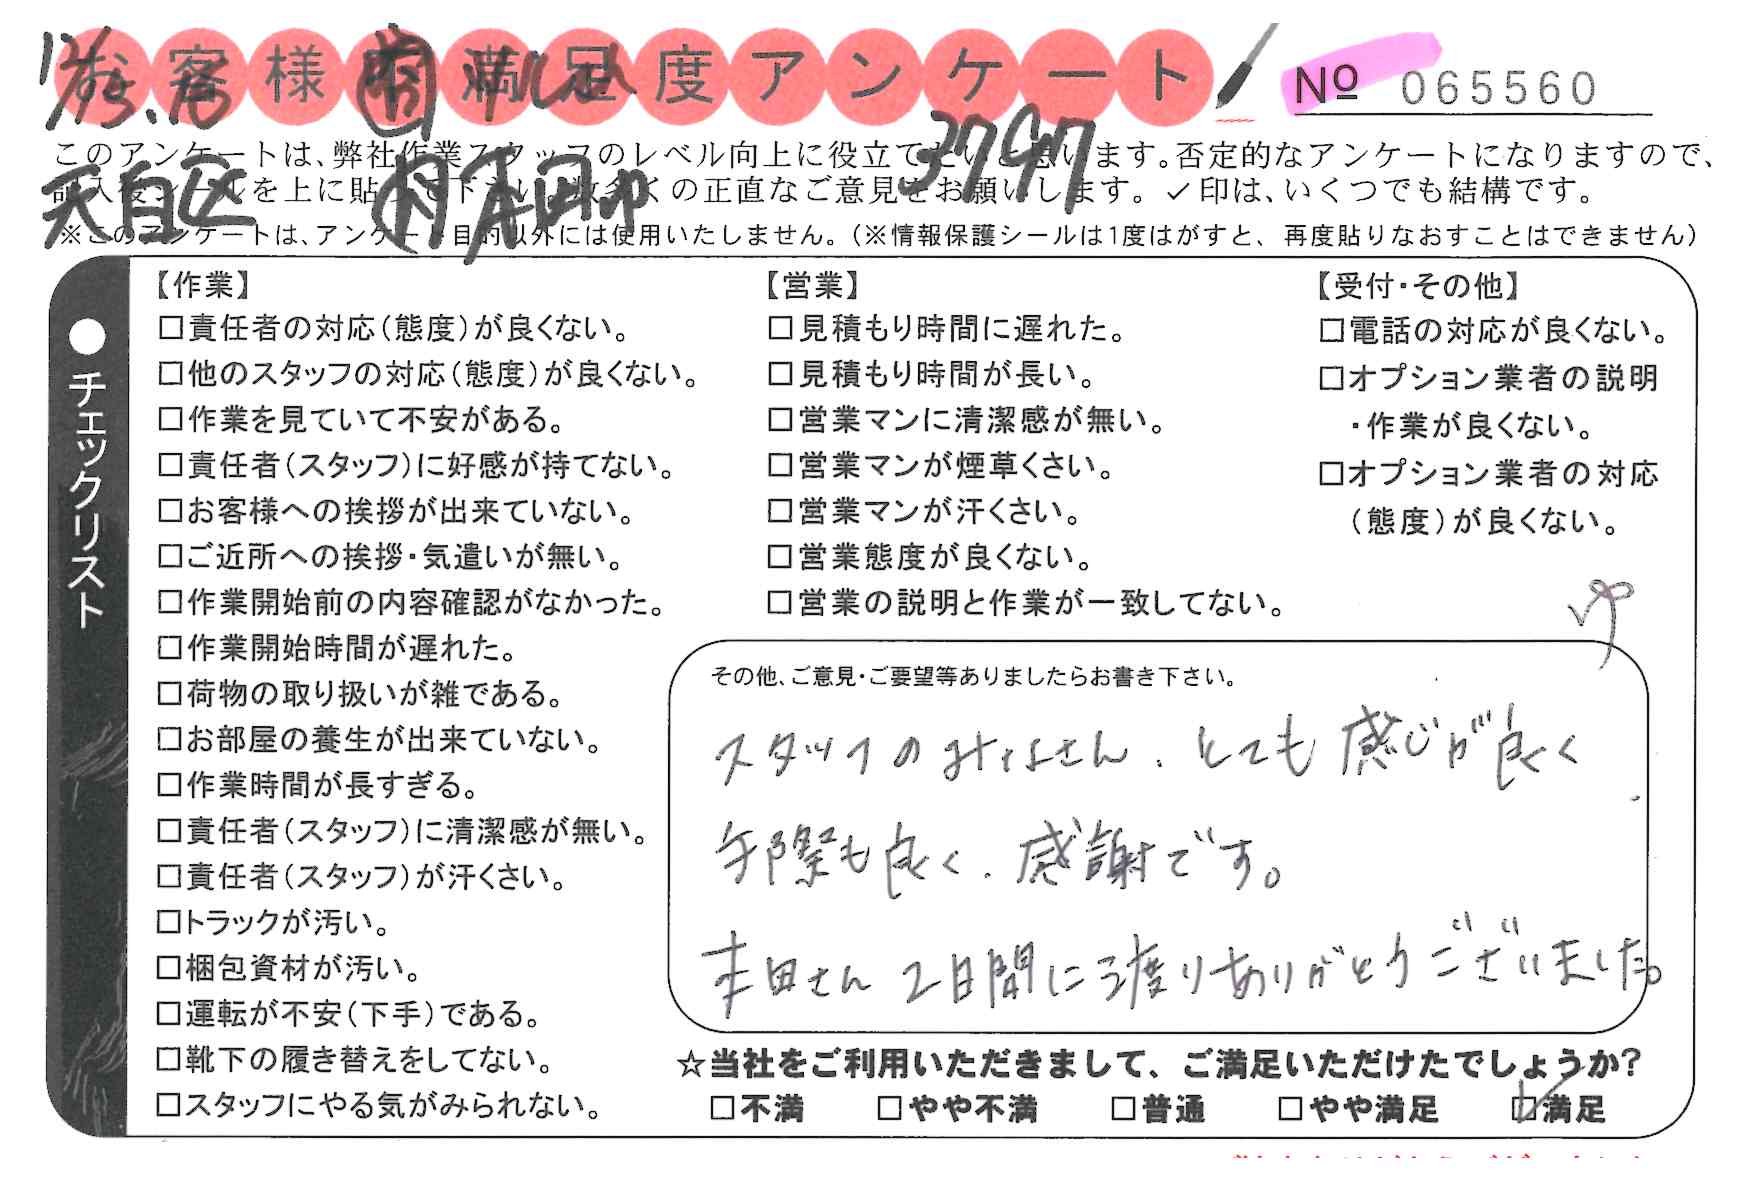 お客様満足度アンケート
№ 065560
このアンケートは、弊社作業スタッフのレベル向上に役立てたいと思います。否定的なアンケートになりますので、
記入後シールを上に貼って下さい。数多くの正直なご意見をお願いします。✓印は、いくつでも結構です。
※このアンケートは、アンケート目的以外には使用いたしません。(※情報保護シールは1度はがすと、再度貼りなおすことはできません)
天白区
3797
●チェックリスト
【作業】
□責任者の対応(態度)が良くない。
□他のスタッフの対応(態度)が良くない。
□作業を見ていて不安がある。
□責任者(スタッフ)に好感が持てない。
□お客様への挨拶が出来ていない。
□ご近所への挨拶・気遣いが無い。
□作業開始前の内容確認がなかった。
□作業開始時間が遅れた。
□荷物の取り扱いが雑である。
□お部屋の養生が出来ていない。
□作業時間が長すぎる。
□責任者(スタッフ)に清潔感が無い。
□責任者(スタッフ)が汗くさい。
□トラックが汚い。
□梱包資材が汚い。
□運転が不安(下手)である。
□靴下の履き替えをしてない。
□スタッフにやる気がみられない。
【営業】
□見積もり時間に遅れた。
□見積もり時間が長い。
□営業マンに清潔感が無い。
□営業マンが煙草くさい。
□営業マンが汗くさい。
□営業態度が良くない。
□営業の説明と作業が一致してない。
【受付・その他】
□電話の対応が良くない。
□オプション業者の説明
・作業が良くない。
□オプション業者の対応
(態度)が良くない。
その他、ご意見・ご要望等ありましたらお書き下さい。
スタッフのみなさん、とても感じが良く
手際も良く、感謝です。
本田さん2日間に渡りありがとうございました。
☆当社をご利用いただきまして、ご満足いただけたでしょうか?
□不満 □やや不満 □普通 □やや満足 ☑満足